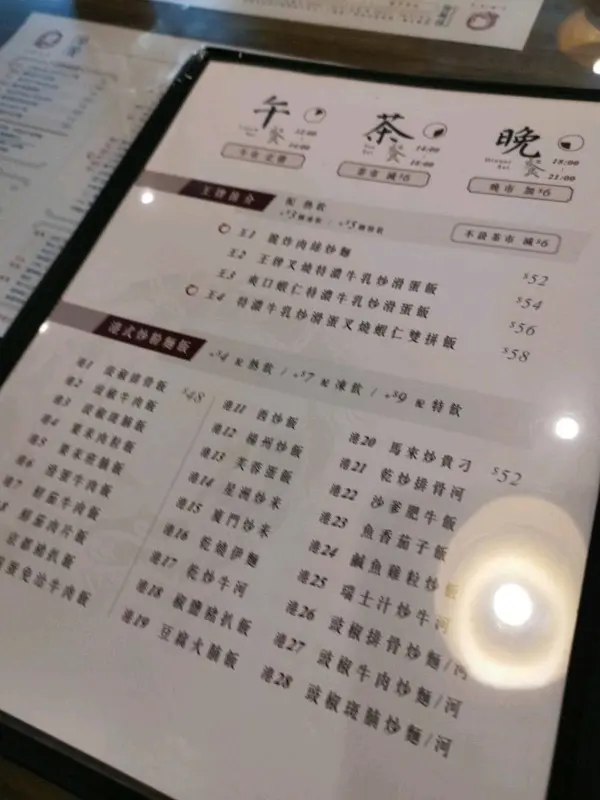 午餐
12:00
14:00
午市 正價
茶餐
14:00
18:00
茶市 減$6
晚餐
18:00
21:00
晚市 加$6
王牌推介
配 熱飲
不設茶市 減$6
王1 $52
王2 王牌叉燒特濃牛乳炒滑蛋飯 $54
王3 爽口蝦仁特濃牛乳炒滑蛋飯 $56
王4 特濃牛乳炒滑蛋叉燒蝦仁雙拼飯 $58
港式炒粉麵飯
+$4 配 熱飲 / +$7 配 凍飲 / +$9 配 特飲
港1 豉椒排骨飯 $48
港2 豉椒牛肉飯
港3 豉椒斑腩飯
港4 粟米肉粒飯
港5 粟米斑腩飯
港6 滑蛋牛肉飯
港7 鮮茄牛肉飯
鮮茄肉片飯
京都豬扒飯
免治牛肉飯
港11 西炒飯
港12 楊州炒飯
港13 芙蓉蛋飯
港14 星洲炒米
港15 廈門炒米
港16 乾燒伊麵
港17 乾炒牛河
港18 椒鹽豬扒飯
港19 豆腐火腩飯
港20 馬來炒貴刁 $52
港21 乾炒排骨河
港22 沙爹肥牛飯
港23 魚香茄子飯
港24 鹹魚雞粒炒飯
港25 瑞士汁炒牛河
港26 豉椒排骨炒麵/河
港27 豉椒牛肉炒麵/河
港28 豉椒斑腩炒麵/河